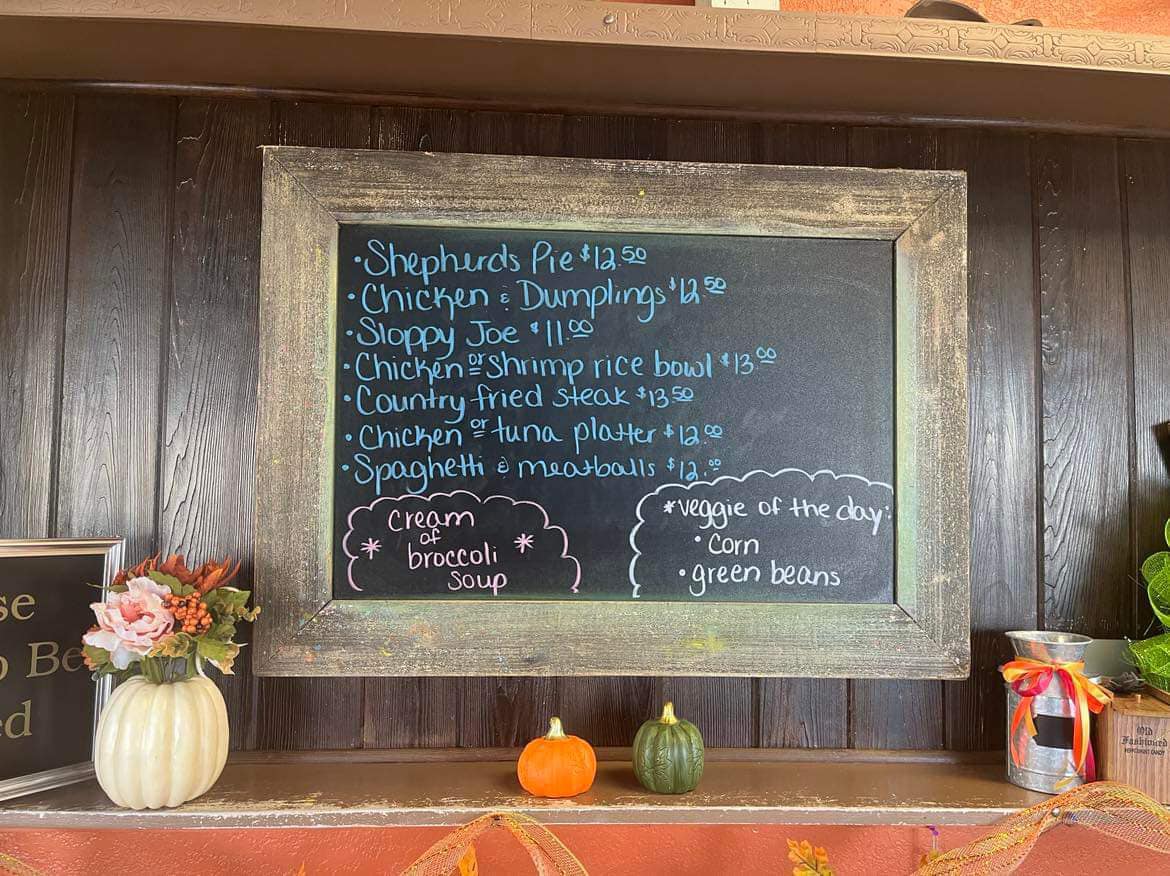 •Shepherds Pie $12.50
•Chicken & Dumplings $12.50
•Sloppy Joe $11.00
•Chicken or shrimp rice bowl $13.00
•Country fried steak $13.50
•Chicken or tuna platter $12.00
•Spaghetti & meatballs $12.00
cream
of
* broccoli *
soup
*veggie of the day:
•corn
•green beans
se
o Be
ed
Old
Fashioned
PEPPERMINT CANDY